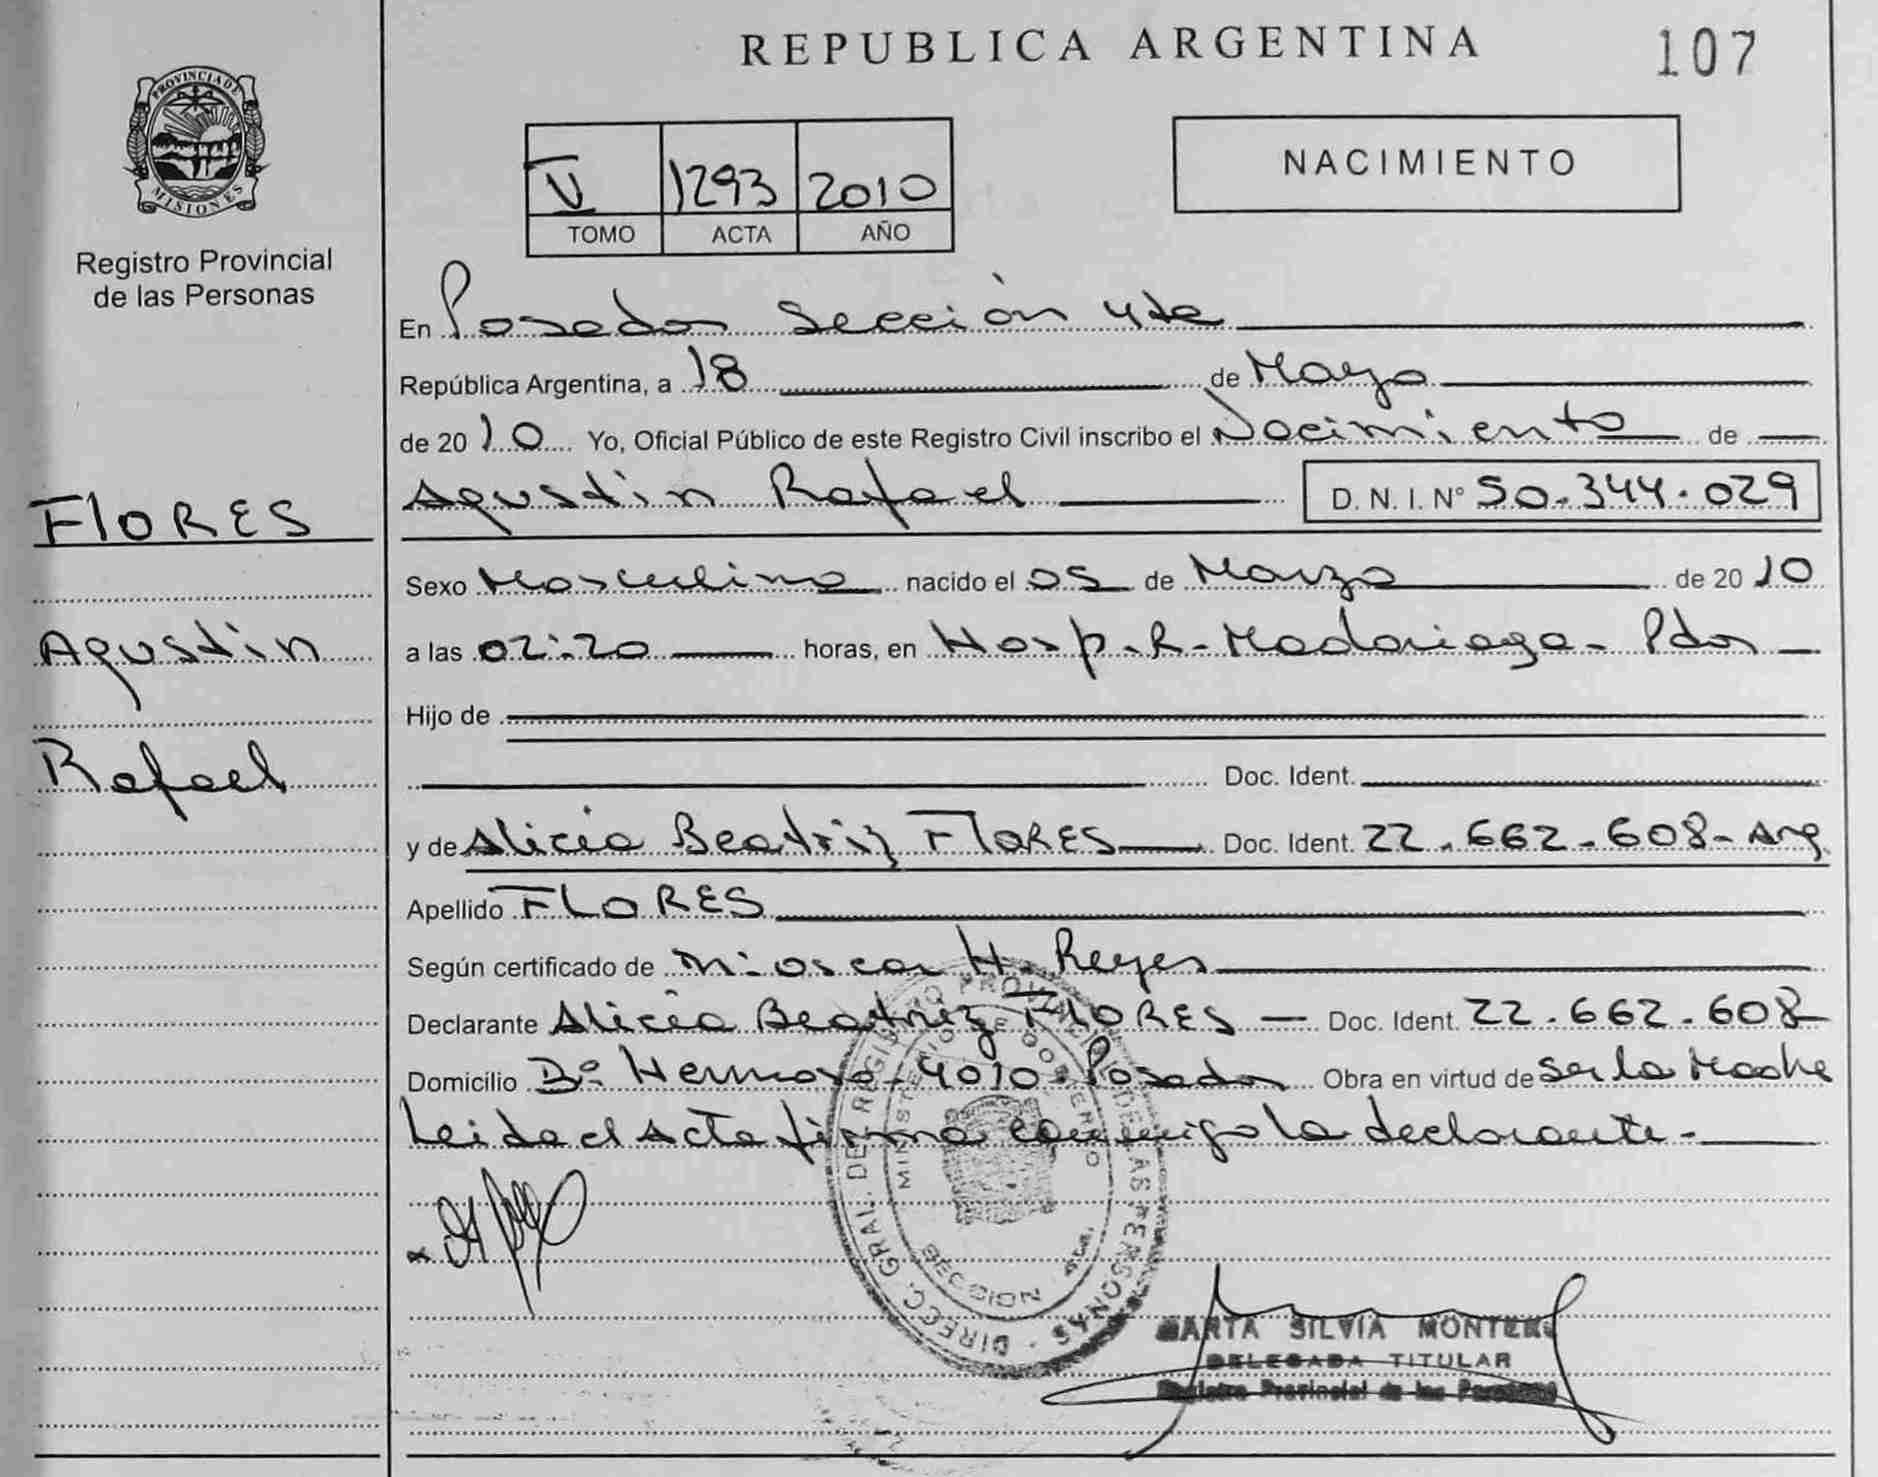 REPUBLICA ARGENTINA
107
PROVINCIA DE MISIONES
Registro Provincial
de las Personas
V 1293 2010
TOMO ACTA AÑO
NACIMIENTO
En Posadas Sección 4ta
República Argentina, a 18 de Mayo
de 2010 Yo, Oficial Público de este Registro Civil inscribo el Nacimiento de
Agustin Rafael D. N. I. N° 50.344.029
FLORES
Agustin
Rafael
Sexo Masculino nacido el 05 de Marzo de 2010
a las 02:20 horas, en Hosp. R. Madariaga - Pdas
Hijo de
Doc. Ident.
y de Alicia Beatriz FLORES Doc. Ident. 22.662.608 - Arg.
Apellido FLORES
Según certificado de Oscar H. Reyes
Declarante Alicia Beatriz FLORES Doc. Ident. 22.662.608
Domicilio B° Hermoso - 4010 - Posadas Obra en virtud de ser la Madre
Leida el Acta firma conmigo la declarante.
DIRECC. GRAL. DEL REGISTRO PROVINCIAL DE LAS PERSONAS
MINISTERIO DE GOBIERNO
SECCION 4ta.
MARTA SILVIA MONTERO
DELEGADA TITULAR
Registro Provincial de las Personas